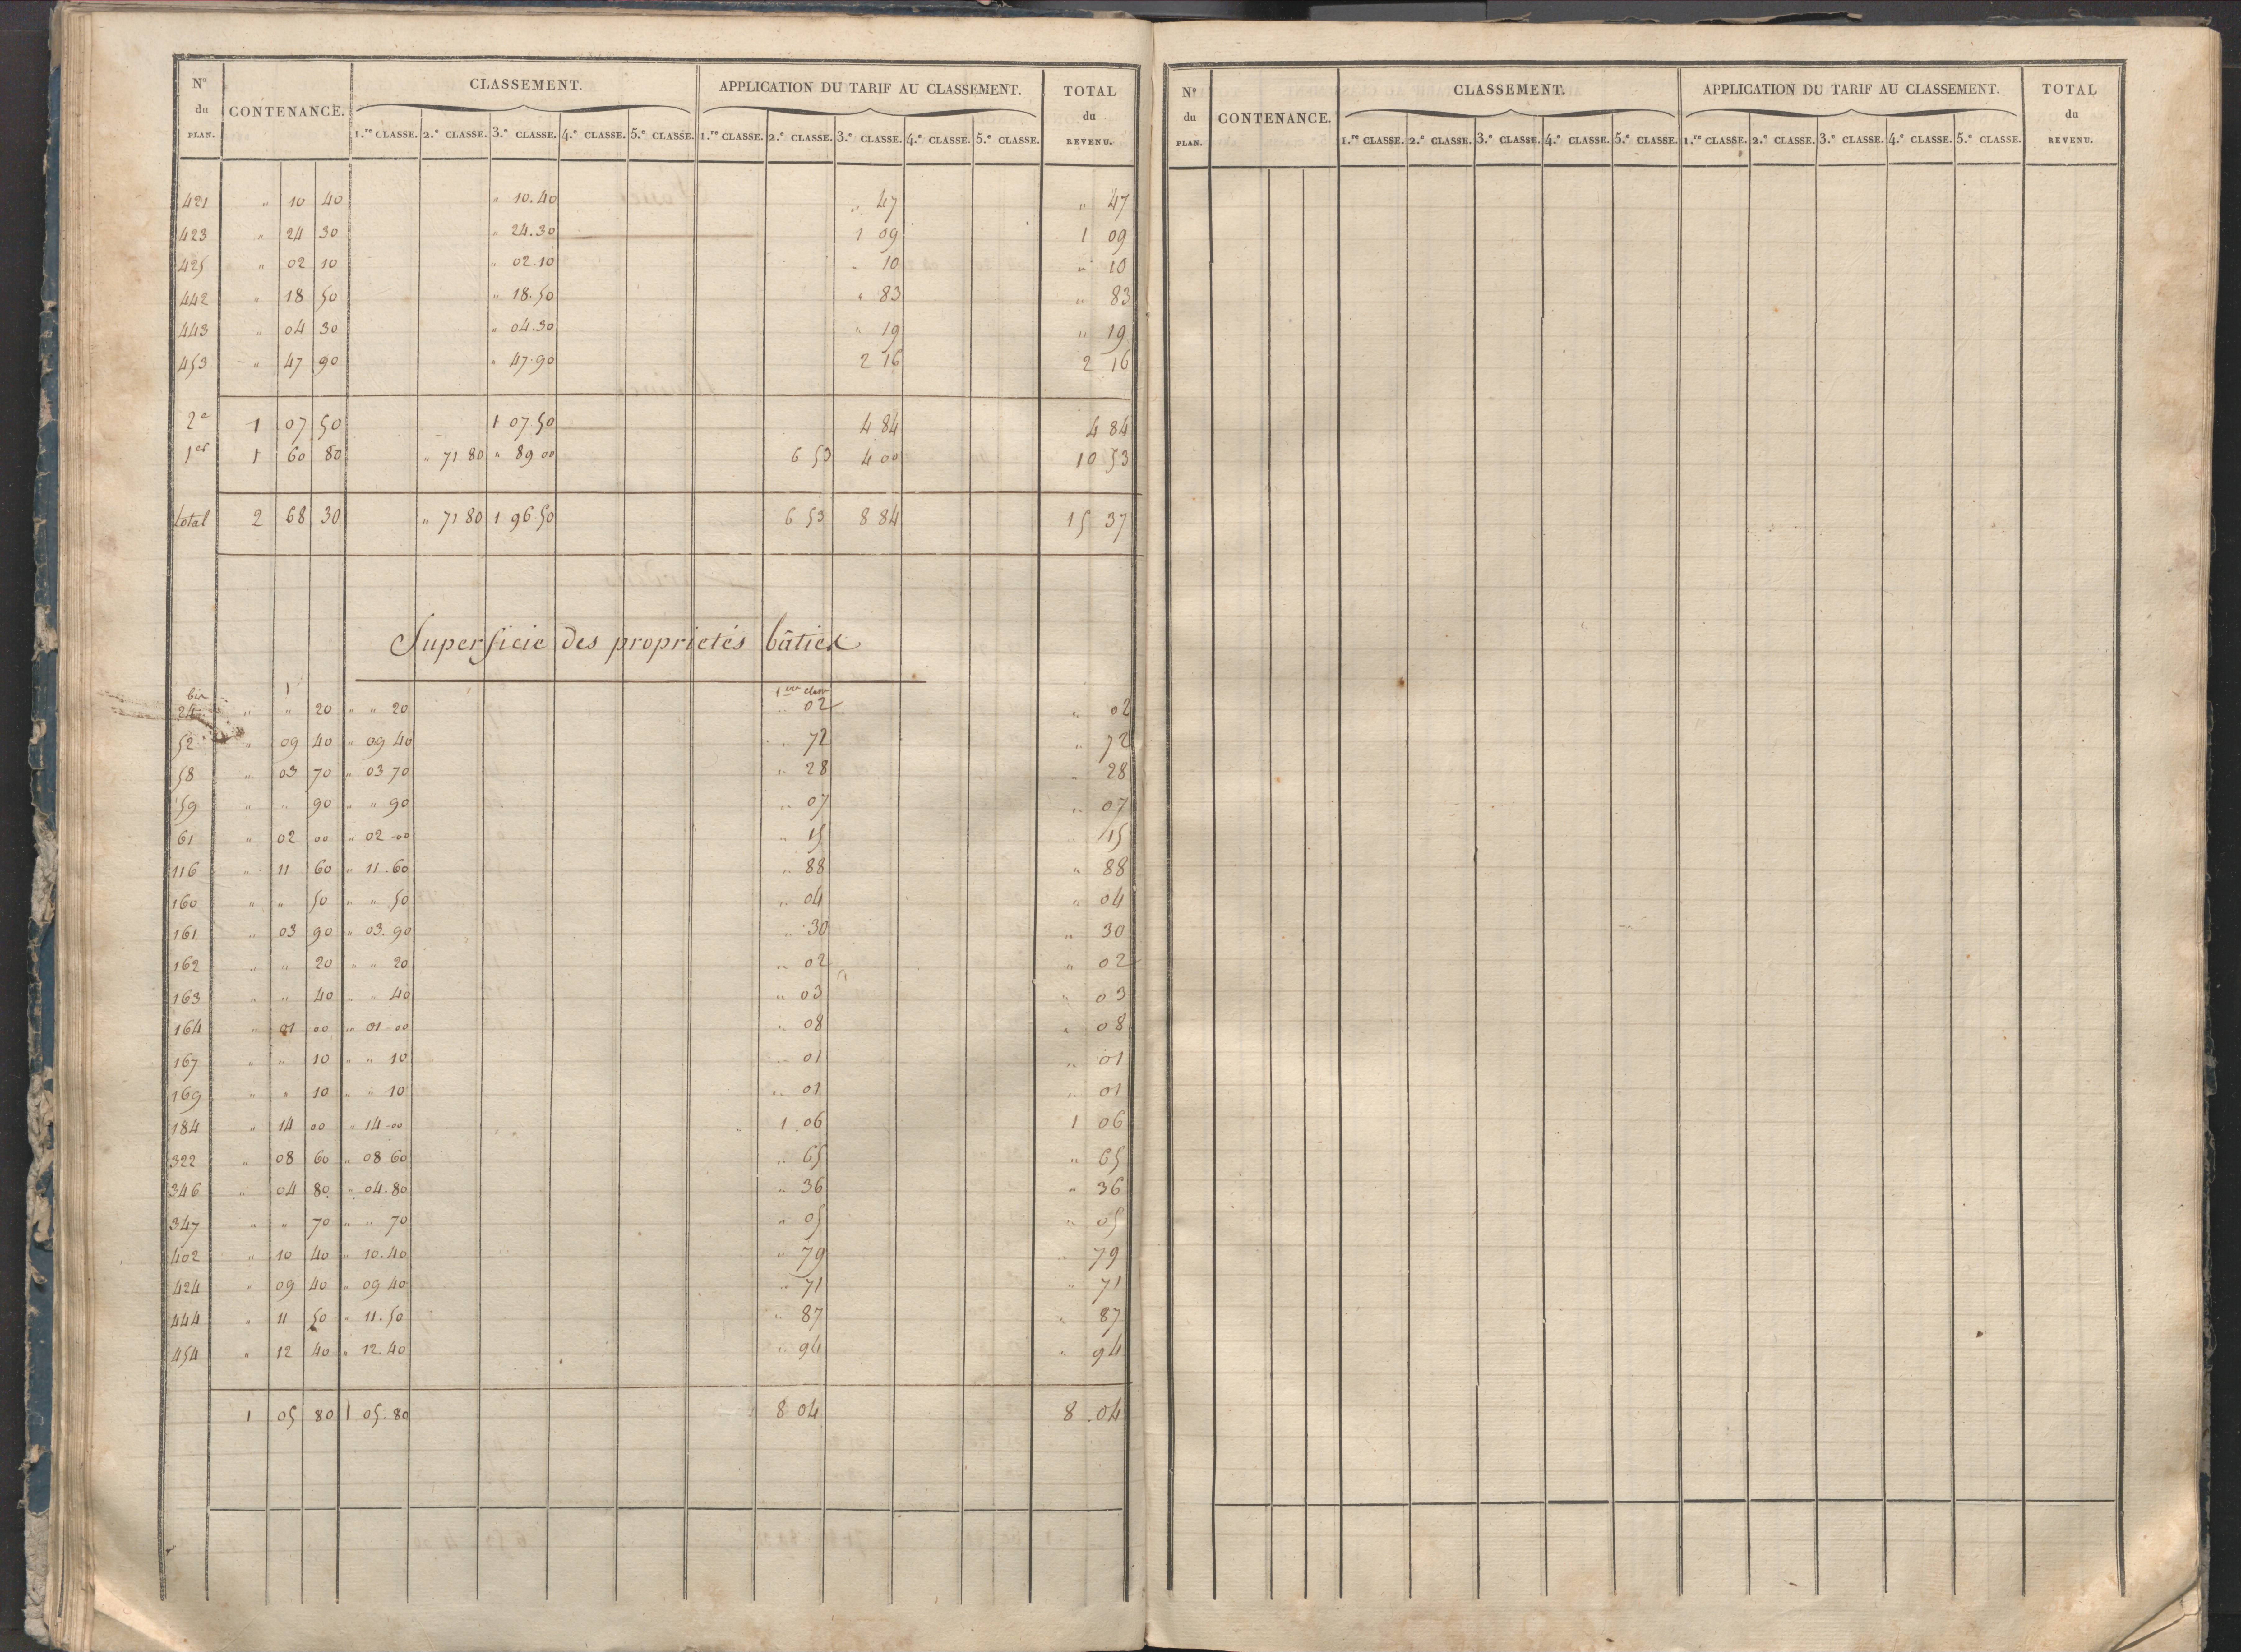 N.º du PLAN. CONTENANCE. CLASSEMENT. APPLICATION DU TARIF AU CLASSEMENT. TOTAL du REVENU.
1.re CLASSE. 2.e CLASSE. 3.e CLASSE. 4.e CLASSE. 5.e CLASSE. 1.re CLASSE. 2.e CLASSE. 3.e CLASSE. 4.e CLASSE. 5.e CLASSE.
421 " 10 40 " 10.40 " 47 " 47
423 " 24 30 " 24.30 1 09 1 09
425 " 02 10 " 02.10 " 10 " 10
442 " 18 50 " 18.50 " 83 " 83
443 " 04 30 " 04.30 " 19 " 19
453 " 47 90 " 47.90 2 16 2 16
2e 1 07 50 1 07.50 4 84 4 84
1er 1 60 80 " 71 80 " 89 00 6 53 4 00 10 53
total 2 68 30 " 71 80 1 96.50 6 53 8 84 15 37
Superficie des proprietés bâties
1ere classe
24 bis " " 20 " " 20 " 02 " 02
52 " 09 40 " 09 40 " 72 " 72
58 " 03 70 " 03 70 " 28 " 28
59 " " 90 " " 90 " 07 " 07
61 " 02 00 " 02 00 " 15 " 15
116 " 11 60 " 11.60 " 88 " 88
160 " " 50 " " 50 " 04 " 04
161 " 03 90 " 03.90 " 30 " 30
162 " " 20 " " 20 " 02 " 02
163 " " 40 " " 40 " 03 " 03
164 " 01 00 " 01 00 " 08 " 08
167 " " 10 " " 10 " 01 " 01
169 " " 10 " " 10 " 01 " 01
184 " 14 00 " 14 00 1 06 1 06
322 " 08 60 " 08 60 " 65 " 65
346 " 04 80 " 04.80 " 36 " 36
347 " " 70 " " 70 " 05 " 05
402 " 10 40 " 10.40 " 79 " 79
424 " 09 40 " 09 40 " 71 " 71
444 " 11 50 " 11.50 " 87 " 87
454 " 12 40 " 12.40 " 94 " 94
1 05 80 1 05.80 8 04 8 04
N.º du PLAN. CONTENANCE. CLASSEMENT. APPLICATION DU TARIF AU CLASSEMENT. TOTAL du REVENU.
1.re CLASSE. 2.e CLASSE. 3.e CLASSE. 4.e CLASSE. 5.e CLASSE. 1.re CLASSE. 2.e CLASSE. 3.e CLASSE. 4.e CLASSE. 5.e CLASSE.